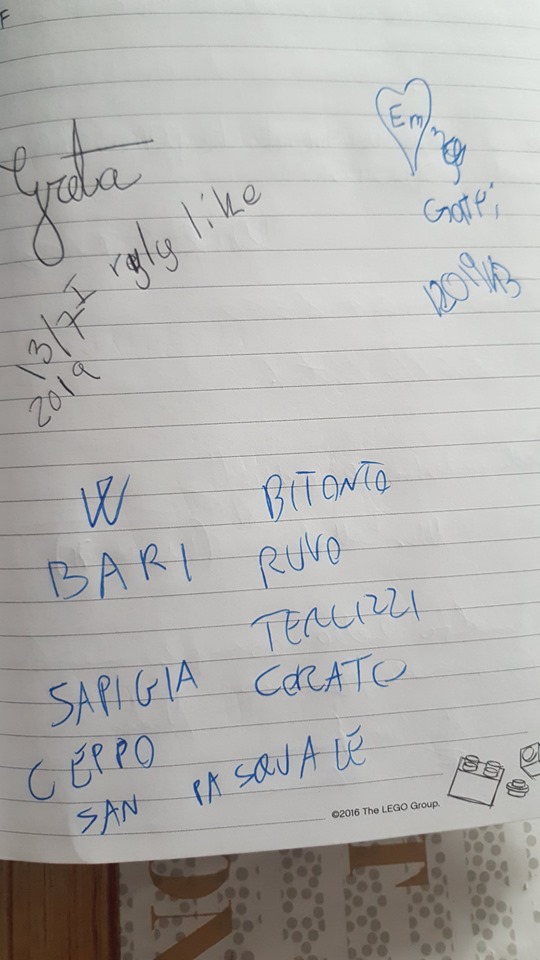 Greta
I rgly like
13/7
2019
Em
W
BARI
SAPIGIA
CEPPO
BITONTO
RUVO
TERLIZZI
CORATO
SAN PASQUALE
©2016 The LEGO Group.